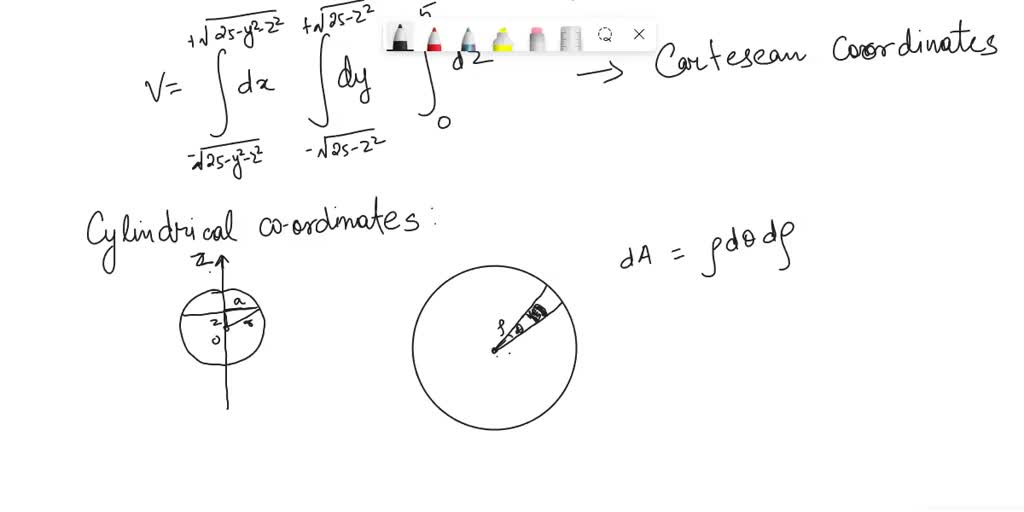 V = ∫_{-√25-y²-z²}^{+√25-y²-z²} dx ∫_{-√25-z²}^{+√25-z²} dy ∫_{0}^{5} dz → Cartesean Coordinates
Cylindrical co-ordinates :
dA = ρ dθ dρ
z
a
z
r
O
ρ
θ